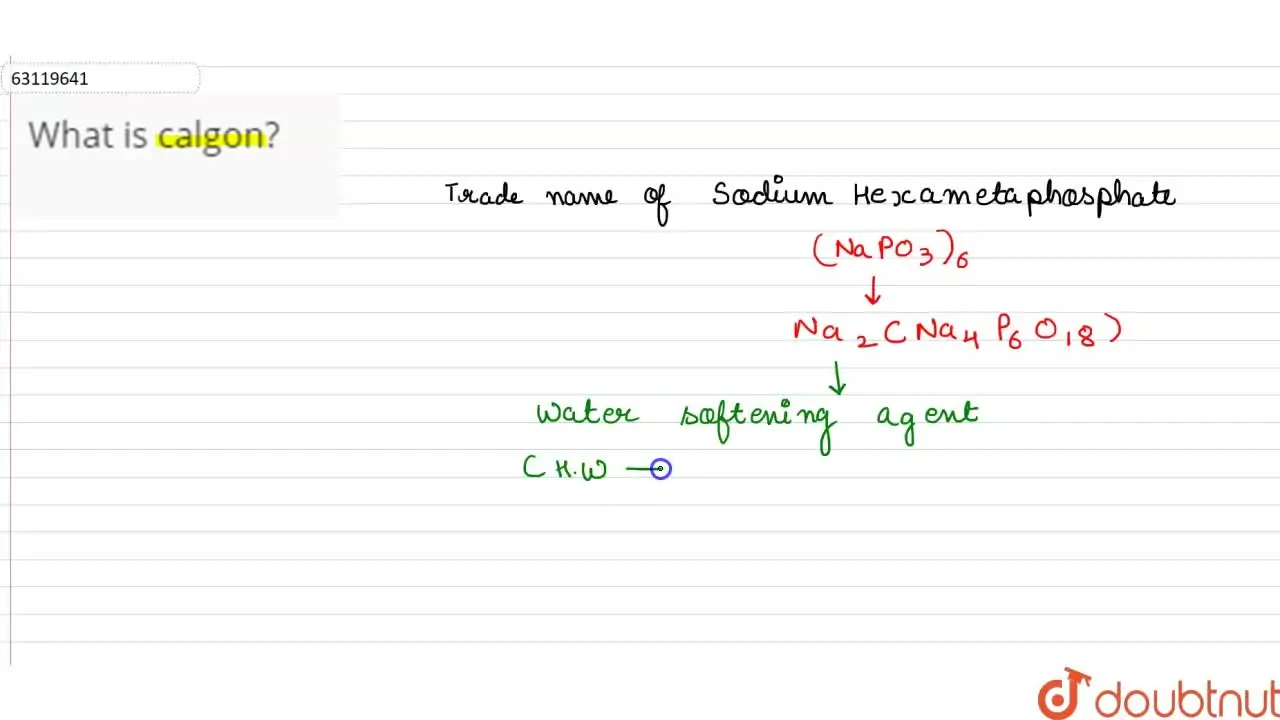 63119641
What is calgon?
Trade name of Sodium Hexametaphosphate
(NaPO3)6
↓
Na2(Na4P6O18)
↓
Water softening agent
(H.W —
doubtnut